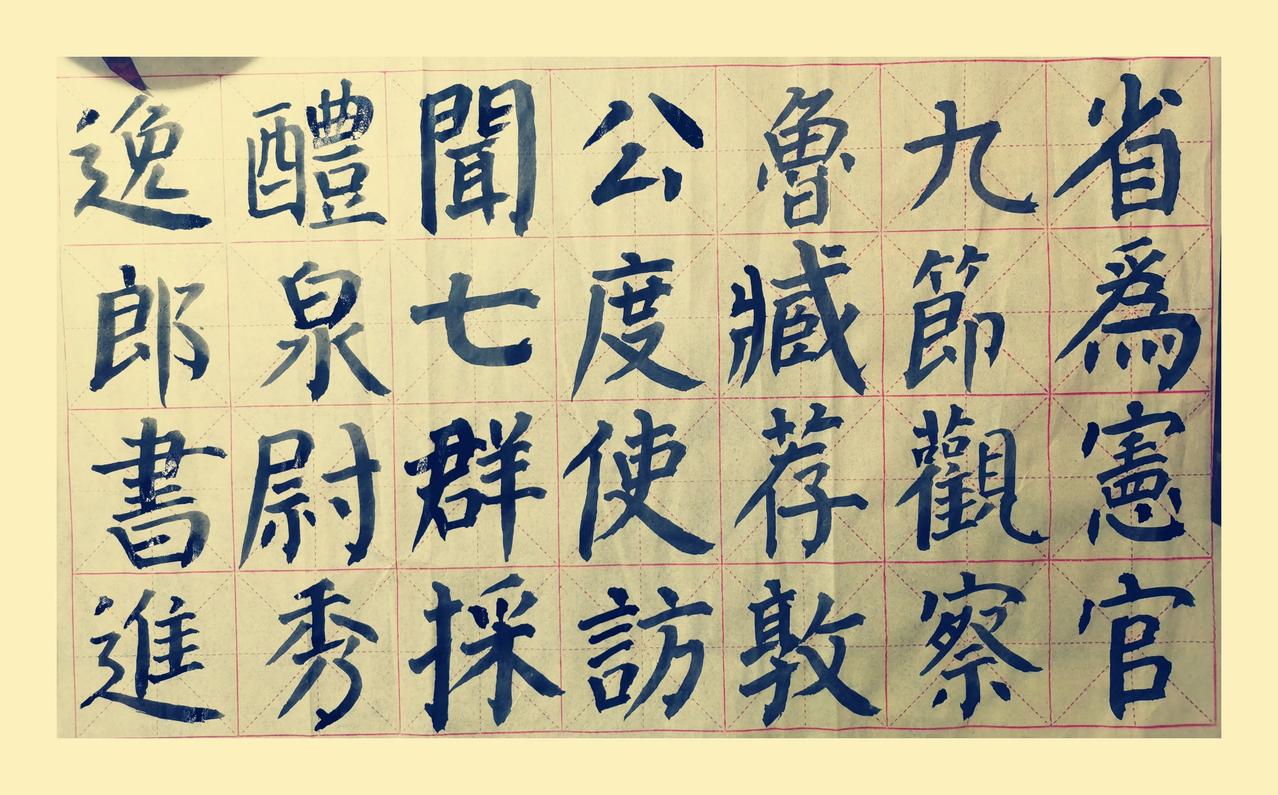 省為憲官
九節觀察
魯臧荐敦
公度使訪
聞七群採
醴泉尉秀
逸郎書進